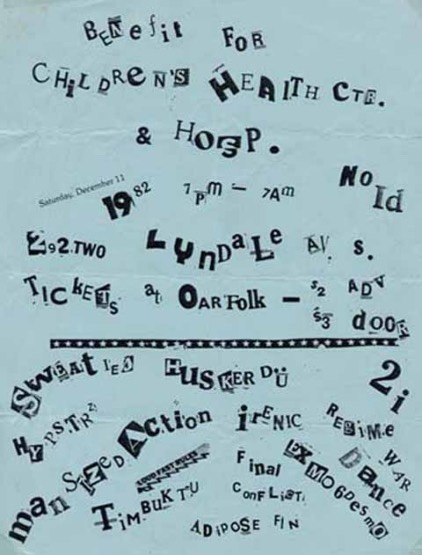 Benefit FOR
CHILDREN'S HEALTH CTR.
& HOSP.
Saturday, December 11
1982 7PM — 7AM NO Id
2292.TWO LYNDALE AV. S.
TICKETS at OARFolk — $2 ADV
$3 dooR
SWEATIES HUSKER DÜ 2i
HYPSTRZ MAN SIZED Action iRENIC REGIME
LOUD FAST RULES Final EXMOGDESMO WAR Dance
TIMBUKTU CONFLICT
ADIPOSE FIN